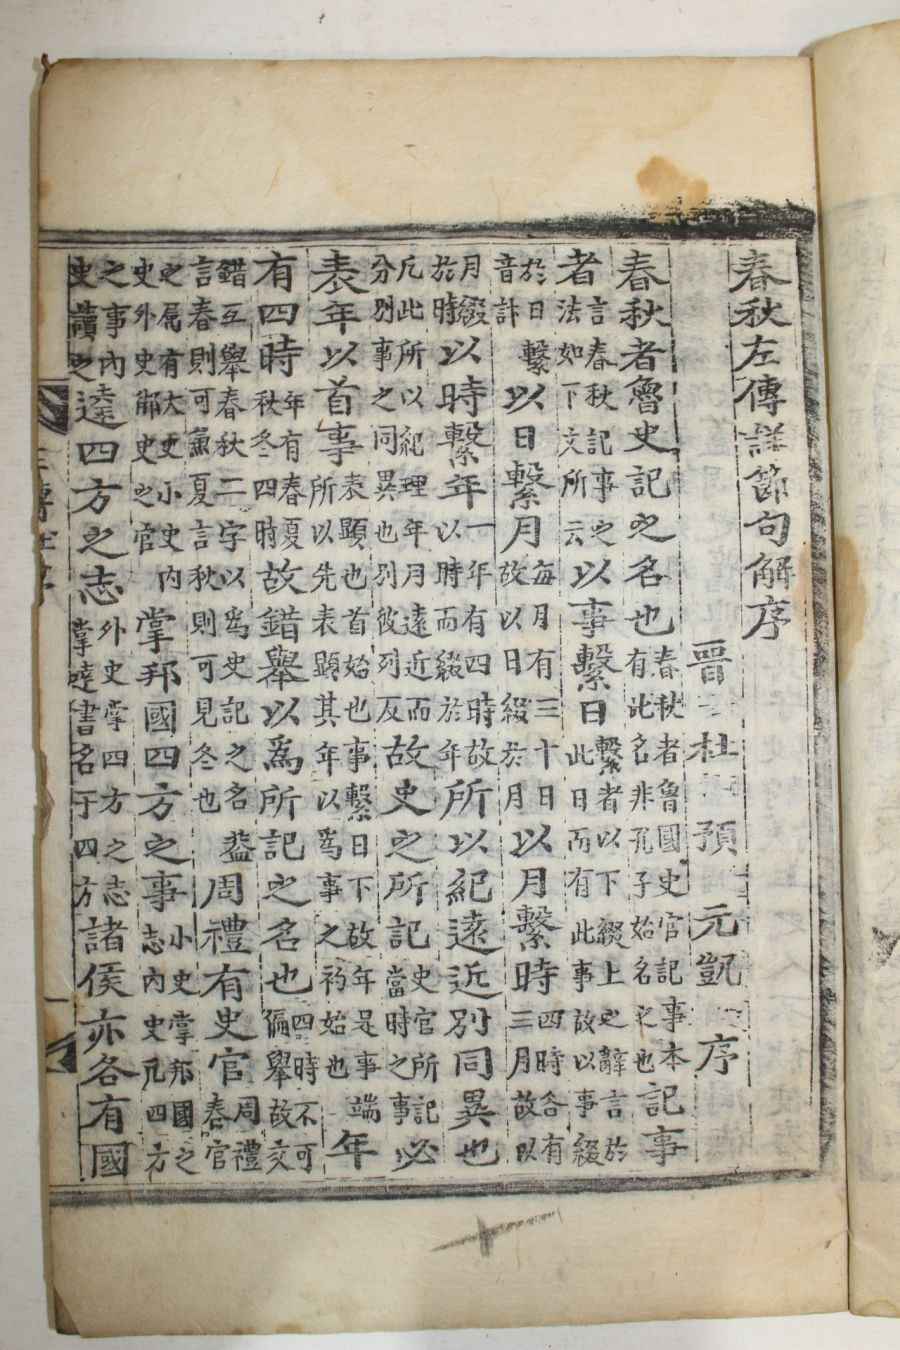 春秋左傳詳節句解序
晉 杜 預 元凱 序
春秋者魯史記之名也春秋者魯國史官記事本有此名非孔子始名之也記事
者言春秋記事之法如下文所云以事繫日繫者以下綴上之辭言於此日而有此事故以事綴
於日繫音計以日繫月每月有三十日故以日綴於月以月繫時四時各有三月故以
月綴於時以時繫年一年有四時故以時而綴於年所以紀遠近別同異也
凡此所以紀理年月遠近而分別事之同異也別彼列反故史之所記史官所記當時之事必
表年以首事表顯也首始也事繫日下故年是事端所以先表顯其年以爲事之初始也年
有四時年有春夏秋冬四時故錯舉以爲所記之名也四時不可偏舉故交
錯互舉春秋二字以爲史記之名言春則可兼夏言秋則可見冬也蓋周禮有史官周禮春官
之属有大史小史內史外史御史之官掌邦國四方之事小史掌邦國之志內史凡四方
之事內史讀之達四方之志外史掌四方之志掌達書名于四方諸侯亦各有國